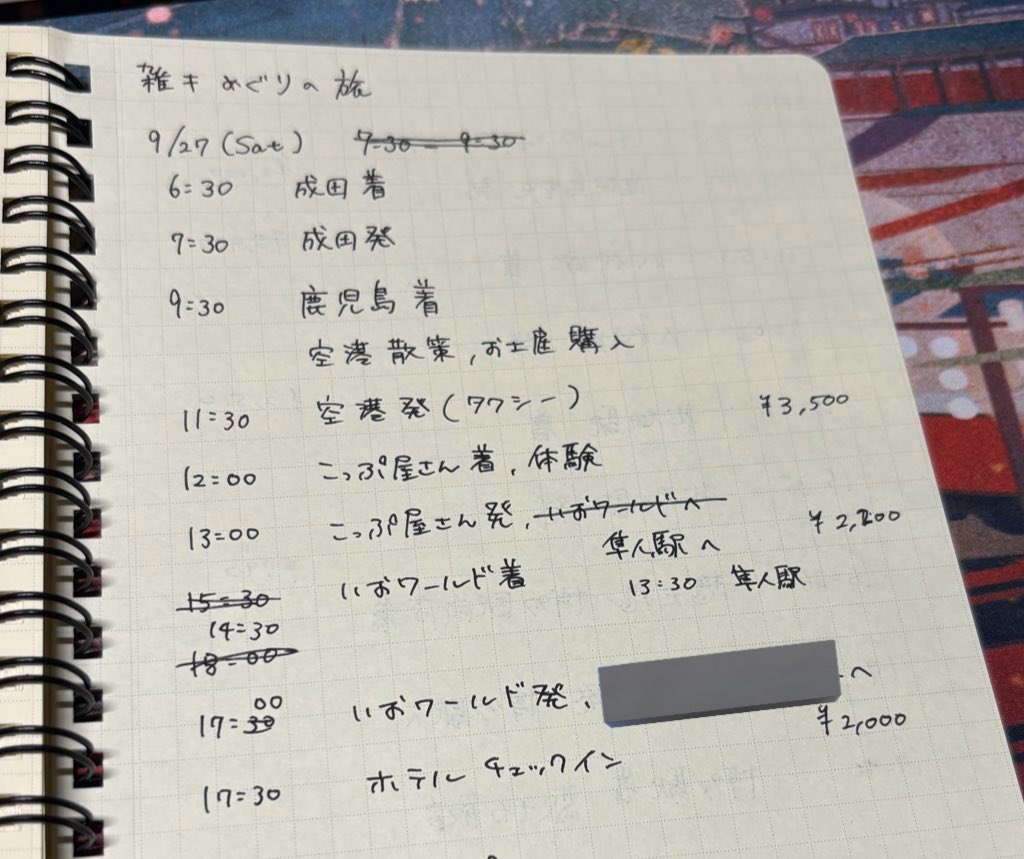 雑キめぐりの旅
9/27 (Sat) 7:30 - 9:30
6:30 成田着
7:30 成田発
9:30 鹿児島着
空港散策,お土産購入
11:30 空港発(タクシー) ¥3,500
12:00 こっぷ屋さん着,体験
13:00 こっぷ屋さん発,いおワールドへ
隼人駅へ
15:30 いおワールド着 13:30 隼人駅
14:30
18:00
17:30 00 いおワールド発, へ
¥2,000
17:30 ホテルチェックイン